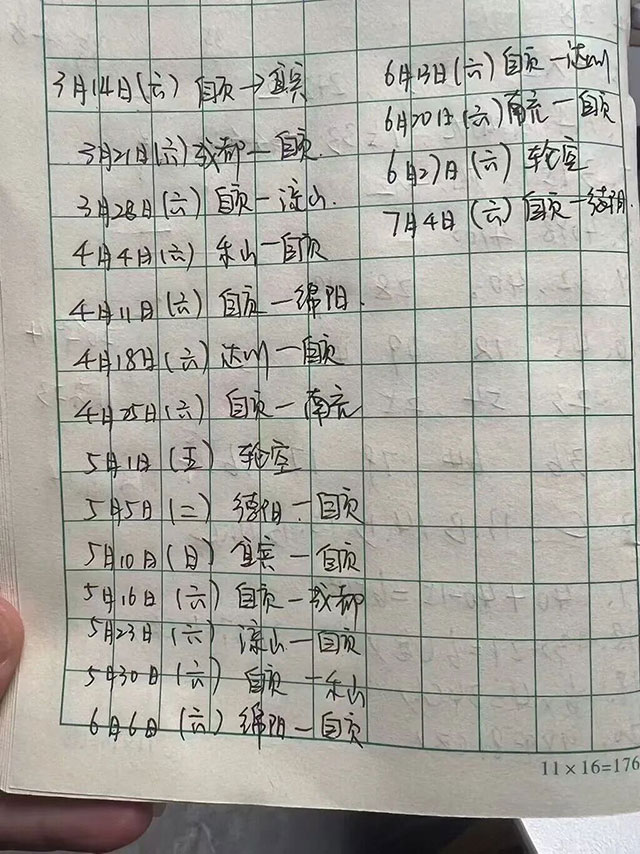 3月14日(六) 自贡→宜宾
3月21日(六) 成都—自贡
3月28日(六) 自贡—凉山
4月4日(六) 乐山—自贡
4月11日(六) 自贡—绵阳
4月18日(六) 达州—自贡
4月25日(六) 自贡—南充
5月1日(五) 轮空
5月5日(二) 德阳—自贡
5月10日(日) 宜宾—自贡
5月16日(六) 自贡—成都
5月23日(六) 凉山—自贡
5月30日(六) 自贡—乐山
6月6日(六) 绵阳—自贡
6月13日(六) 自贡—达州
6月20日(六) 南充—自贡
6月27日(六) 轮空
7月4日(六) 自贡—德阳
11×16=176